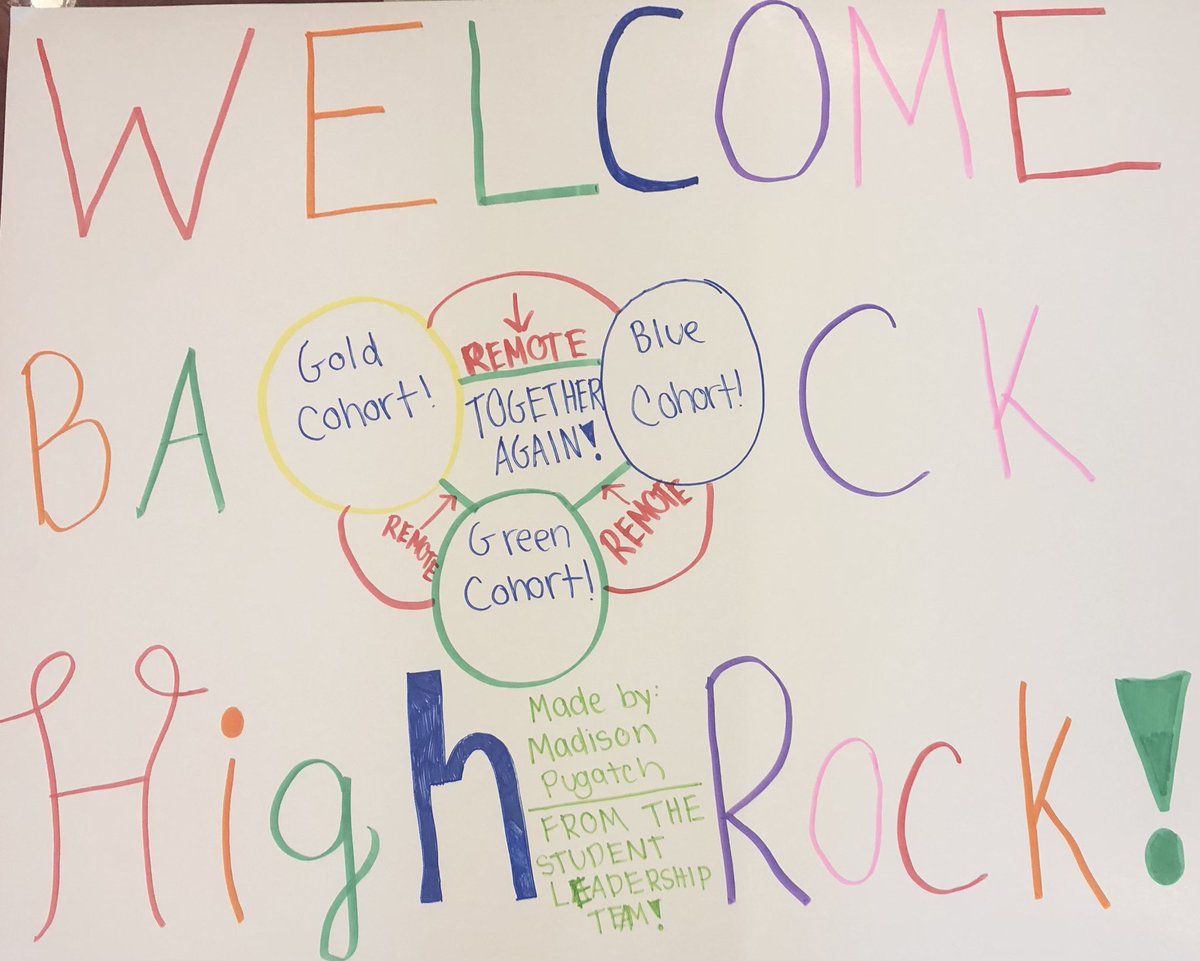 WELCOME
BACK
Gold
Cohort!
REMOTE
TOGETHER
AGAIN!
Blue
Cohort!
REMOTE
REMOTE
Green
Cohort!
High Rock!
Made by:
Madison
Pugatch
FROM THE
STUDENT
LEADERSHIP
TEAM!